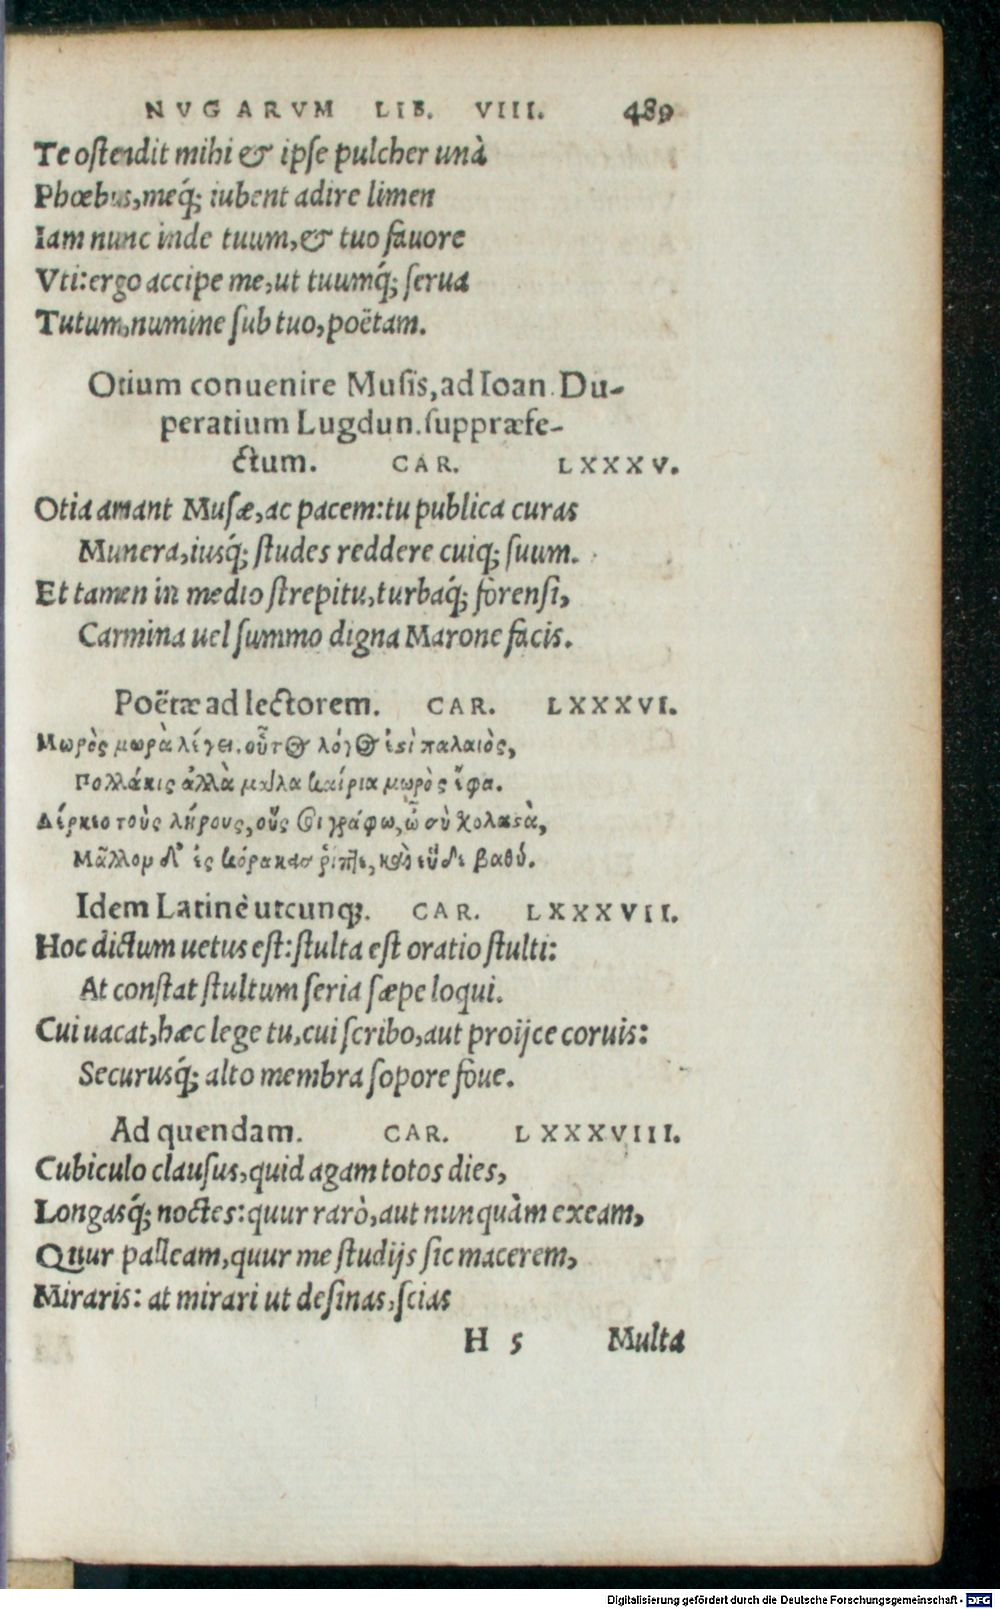 NVGARVM LIB. VIII. 489
Te ostendit mihi & ipse pulcher unà
Phœbus, meq́; iubent adire limen
Iam nunc inde tuum, & tuo fauore
Vti: ergo accipe me, ut tuumq́; serua
Tutum, numine sub tuo, poëtam.
Otium conuenire Musis, ad Ioan. Du-
peratium Lugdun. suppræfe-
ctum. CAR. LXXXV.
Otia amant Musæ, ac pacem: tu publica curas
Munera, iusq́; studes reddere cuiq; suum.
Et tamen in medio strepitu, turbaq́; forensi,
Carmina uel summo digna Marone facis.
Poëtæ ad lectorem. CAR. LXXXVI.
Μωρὸς μωρὰ λέγει. οὗτος λόγος ἐστὶ παλαιὸς,
Πολλάκις ἀλλὰ μάλα καίρια μωρὸς ἔφα.
Δέρκεο τοὺς λήρους, οὕς τοι γράφω, ὦ σὺ χολαστὰ,
Μᾶλλον δ' ἐς κόρακας ῥίπτε, καὶ εὗδε βαθύ.
Idem Latinè utcunq;. CAR. LXXXVII.
Hoc dictum uetus est: stulta est oratio stulti:
At constat stultum seria sæpe loqui.
Cui uacat, hæc lege tu, cui scribo, aut proijce coruis:
Securusq́; alto membra sopore foue.
Ad quendam. CAR. LXXXVIII.
Cubiculo clausus, quid agam totos dies,
Longasq́; noctes: quur rarò, aut nunquàm exeam,
Quur palleam, quur me studijs sic macerem,
Miraris: at mirari ut desinas, scias
H 5 Multa
Digitalisierung gefördert durch die Deutsche Forschungsgemeinschaft - DFG